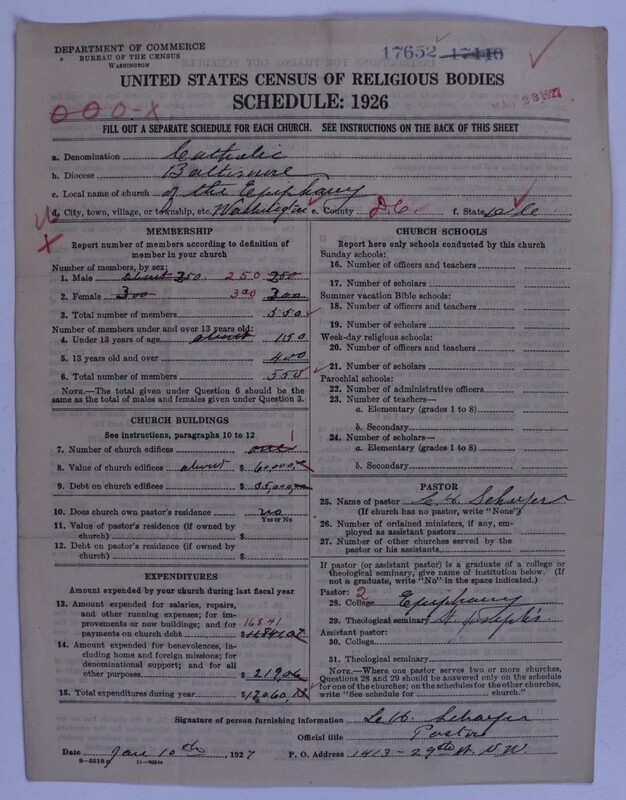 DEPARTMENT OF COMMERCE
BUREAU OF THE CENSUS
WASHINGTON
17652 17440
UNITED STATES CENSUS OF RELIGIOUS BODIES
SCHEDULE: 1926
OOO-X
FILL OUT A SEPARATE SCHEDULE FOR EACH CHURCH. SEE INSTRUCTIONS ON THE BACK OF THIS SHEET
a. Denomination Catholic
b. Diocese Baltimore
c. Local name of church of the Epiphany
d. City, town, village, or township, etc. Washington e. County D.C. f. State D.C.
MEMBERSHIP
Report number of members according to definition of member in your church
Number of members, by sex:
1. Male about 250 250 250
2. Female 300 300 300
3. Total number of members 550
Number of members under and over 13 years old:
4. Under 13 years of age about 150
5. 13 years old and over 400
6. Total number of members 550
NOTE.—The total given under Question 6 should be the same as the total of males and females given under Question 3.
CHURCH BUILDINGS
See instructions, paragraphs 10 to 12
7. Number of church edifices one 1
8. Value of church edifices about $ 60,000
9. Debt on church edifices $ 35,000
10. Does church own pastor's residence no
Yes or No
11. Value of pastor's residence (if owned by church) $
12. Debt on pastor's residence (if owned by church) $
EXPENDITURES
Amount expended by your church during last fiscal year
13. Amount expended for salaries, repairs, and other running expenses; for improvements or new buildings; and for payments on church debt 16841 $ 16841.07
14. Amount expended for benevolences, including home and foreign missions; for denominational support; and for all other purposes $ 219.06
15. Total expenditures during year $ 17060.13
CHURCH SCHOOLS
Report here only schools conducted by this church
Sunday schools:
16. Number of officers and teachers
17. Number of scholars
Summer vacation Bible schools:
18. Number of officers and teachers
19. Number of scholars
Week-day religious schools:
20. Number of officers and teachers
21. Number of scholars
Parochial schools:
22. Number of administrative officers
23. Number of teachers—
a. Elementary (grades 1 to 8)
b. Secondary
24. Number of scholars—
a. Elementary (grades 1 to 8)
b. Secondary
PASTOR
25. Name of pastor
(If church has no pastor, write "None")
26. Number of ordained ministers, if any, employed as assistant pastors
27. Number of other churches served by the pastor or his assistants
If pastor (or assistant pastor) is a graduate of a college or theological seminary, give name of institution below. (If not a graduate, write "No" in the space indicated.)
Pastor: 2
28. College Epiphany
29. Theological seminary St. Joseph's
Assistant pastor:
30. College
31. Theological seminary
NOTE.—Where one pastor serves two or more churches, Questions 28 and 29 should be answered only on the schedule for one of the churches; on the schedules for the other churches, write "See schedule for church."
Signature of person furnishing information
Official title Pastor
Date Jan 10th, 1927 P. O. Address 1413 - 29th St. N.W.